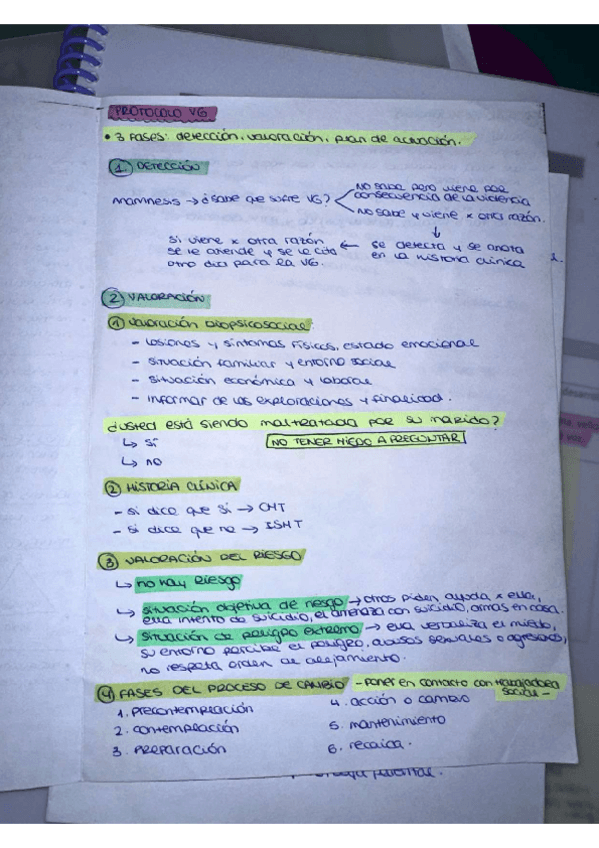 PROTOCOLO VG
• 3 FASES: detección, valoración, plan de actuación.
1. DETECCIÓN
Mamnesis → ¿sabe que sufre VG?
NO sabe pero viene por
consecuencia de la violencia
NO sabe y viene x otra razón.
↓
se detecta y se anota
en la historia clínica
←
si viene x otra razón
se le atiende y se le cita
otro día para la VG.
2 VALORACIÓN
1 Valoración biopsicosocial:
- Lesiones y síntomas físicos, estado emocional
- Situación familiar y entorno social
- Situación económica y laboral
- Informar de las exploraciones y finalidad.
¿Usted está siendo maltratada por su marido?
↳ Sí
NO TENER MIEDO A PREGUNTAR
↳ no
2 HISTORIA CLÍNICA
- si dice que sí → CMT
- si dice que no → ISMT
3 VALORACIÓN DEL RIESGO
↳ no hay riesgo
↳ situación objetiva de riesgo → otros piden ayuda x ella,
ella intento de suicidio, el amenaza con suicidio, armas en casa.
↳ Situación de peligro extremo → ella verbaliza el miedo,
su entorno percibe el peligro, abusos sexuales o agresiones,
no respeta orden de alejamiento.
4 FASES DEL PROCESO DE CAMBIO - poner en contacto con trabajadora
social -
1. precontemplación
2. contemplación
3. preparación
4. acción o cambio
5. mantenimiento
6. recaída.